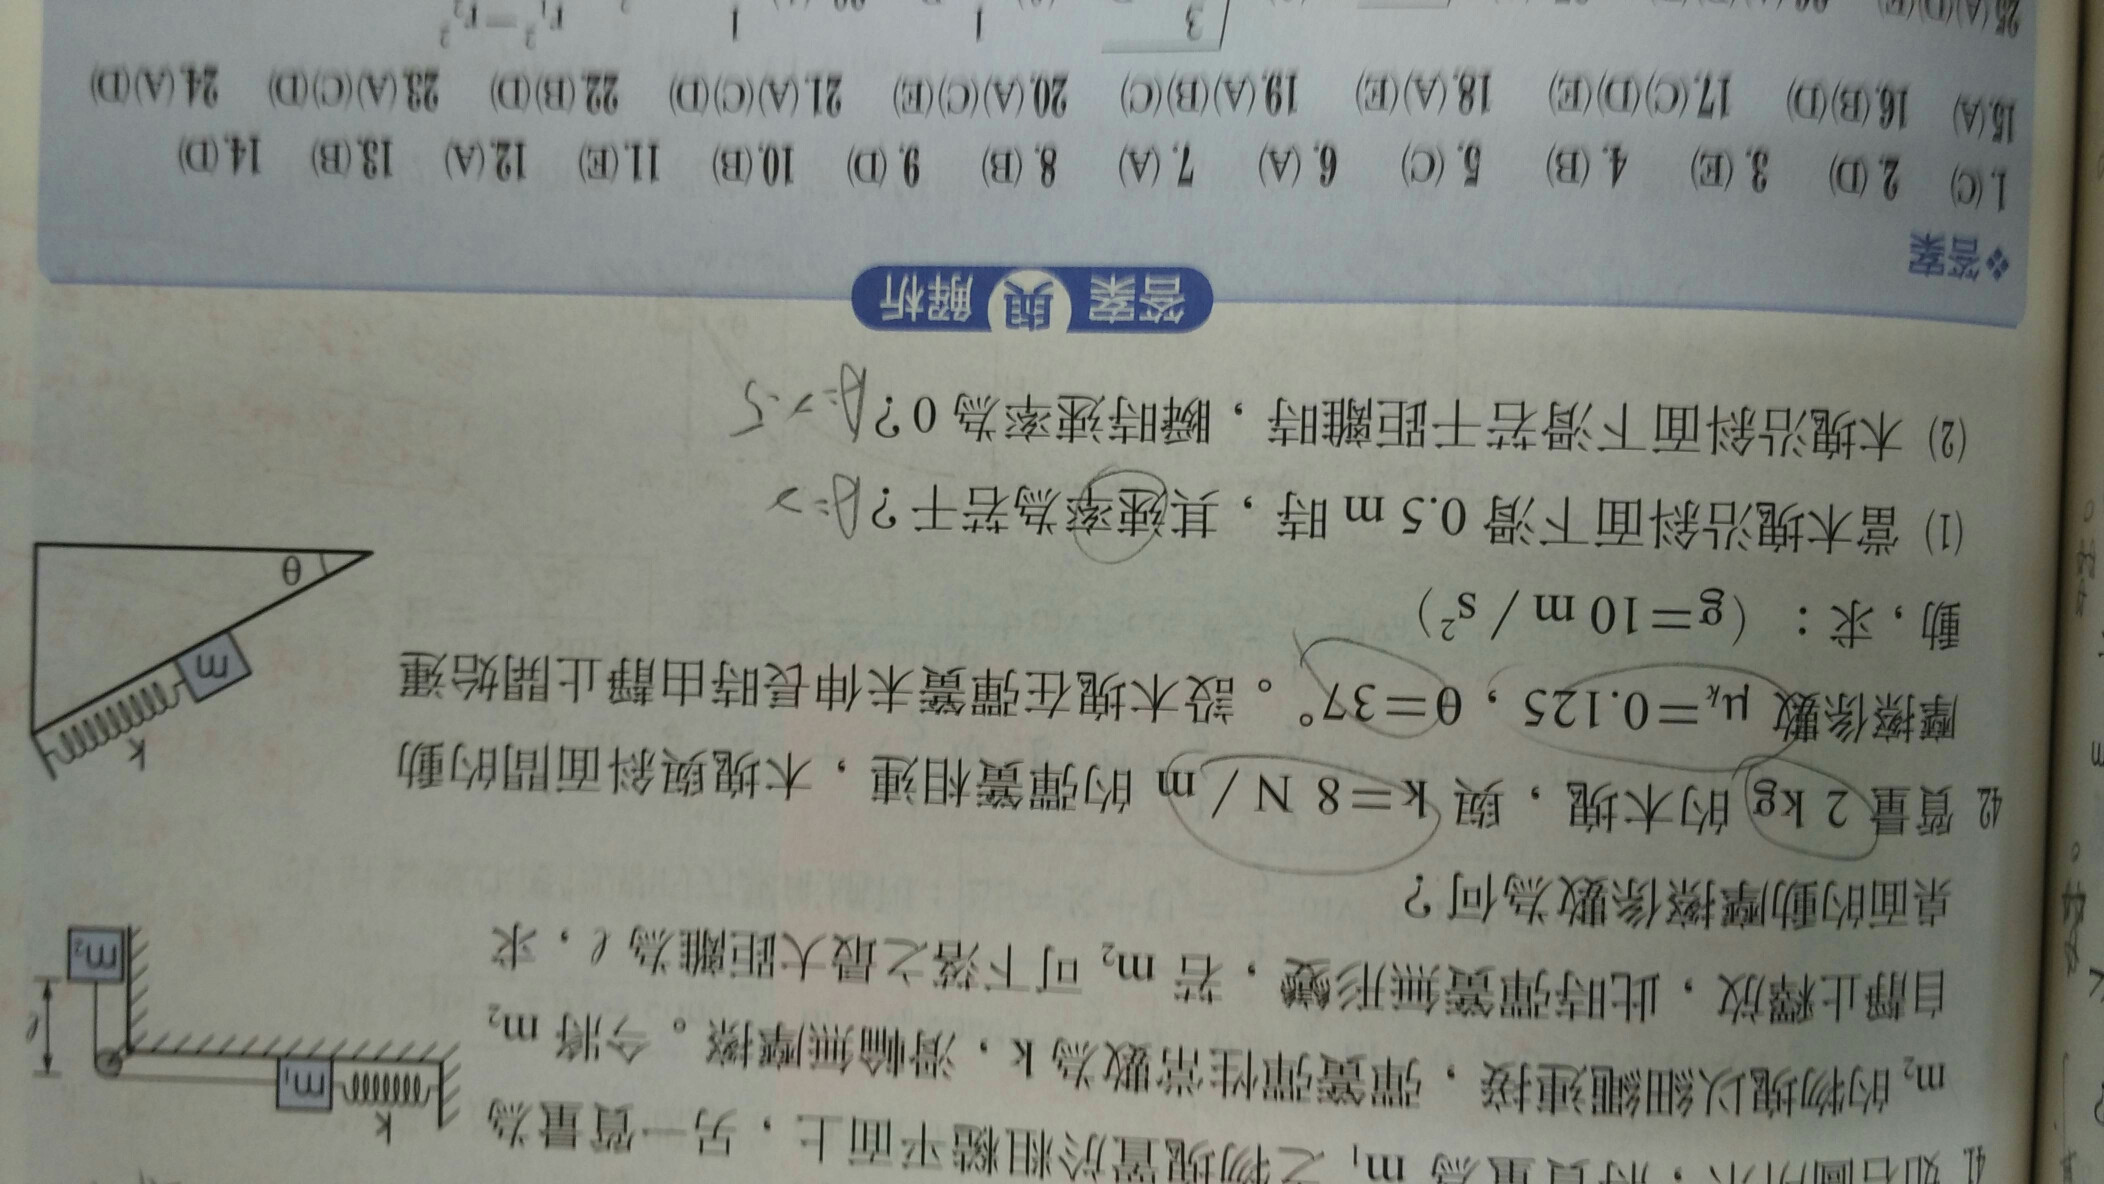 41. 如右圖所示,將質量為 m₁ 之物塊置於粗糙平面上,另一質量為
m₂ 的物塊以細繩連接,彈簧彈性常數為 k,滑輪無摩擦。今將 m₂
自靜止釋放,此時彈簧無形變,若 m₂ 可下落之最大距離為 ℓ,求
桌面的動摩擦係數為何?
k
m₁
m₂
ℓ
42. 質量 2 kg 的木塊,與 k=8 N/m 的彈簧相連,木塊與斜面間的動
摩擦係數 μₖ=0.125,θ=37°。設木塊在彈簧未伸長時由靜止開始運
動,求:(g=10 m/s²)
(1) 當木塊沿斜面下滑 0.5 m 時,其速率為若干?
(2) 木塊沿斜面下滑若干距離時,瞬時速率為 0?
k
m
θ
答案與解析
❖答案
1.(C) 2.(D) 3.(E) 4.(B) 5.(C) 6.(A) 7.(A) 8.(B) 9.(D) 10.(B) 11.(E) 12.(A) 13.(B) 14.(D)
15.(A) 16.(B)(D) 17.(C)(D)(E) 18.(A)(E) 19.(A)(B)(C) 20.(A)(C)(E) 21.(A)(C)(D) 22.(B)(D) 23.(A)(C)(D) 24.(A)(D)
25.(A)(D)(E)